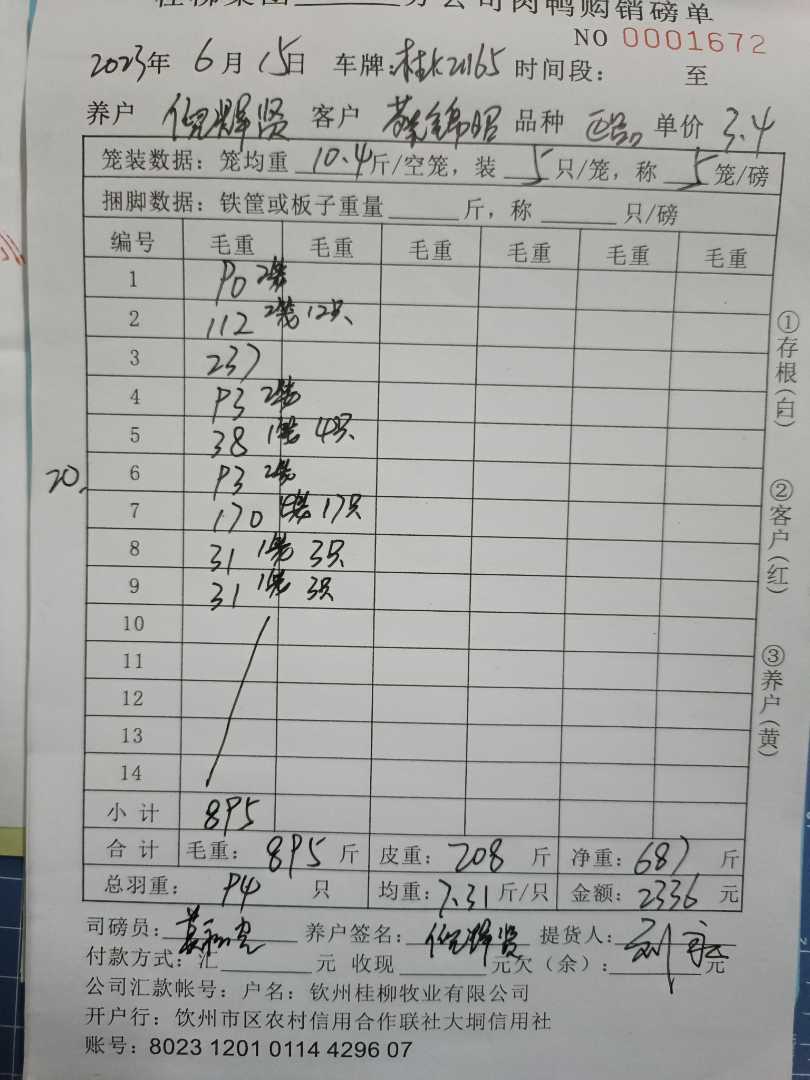 桂柳集团 分公司肉鸭购销磅单
NO 0001672
2023年 6月 15日 车牌: 时间段: 至
养户 倪辉贤 客户 蔡锦昭 品种 单价 3.4
笼装数据: 笼均重 10.4 斤/空笼, 装 5 只/笼, 称 5 笼/磅
捆脚数据: 铁筐或板子重量 斤, 称 只/磅
编号 毛重 毛重 毛重 毛重 毛重 毛重
1 90 2笼
2 112 2笼 12只
3 237
4 93 2笼
5 38 1笼 4只
20.
6 93 2笼
7 170 4笼 17只
8 31 1笼 3只
9 31 1笼 3只
10
11
12
13
14
小计 895
合计 毛重: 895 斤 皮重: 208 斤 净重: 687 斤
总羽重: 94 只 均重: 7.31 斤/只 金额: 2336 元
司磅员: 养户签名: 倪辉贤 提货人:
付款方式: 汇 元 收现 元欠(余): 元
公司汇款帐号: 户名: 钦州桂柳牧业有限公司
开户行: 钦州市区农村信用合作联社大垌信用社
账号: 8023 1201 0114 4296 07
①存根(白)
②客户(红)
③养户(黄)